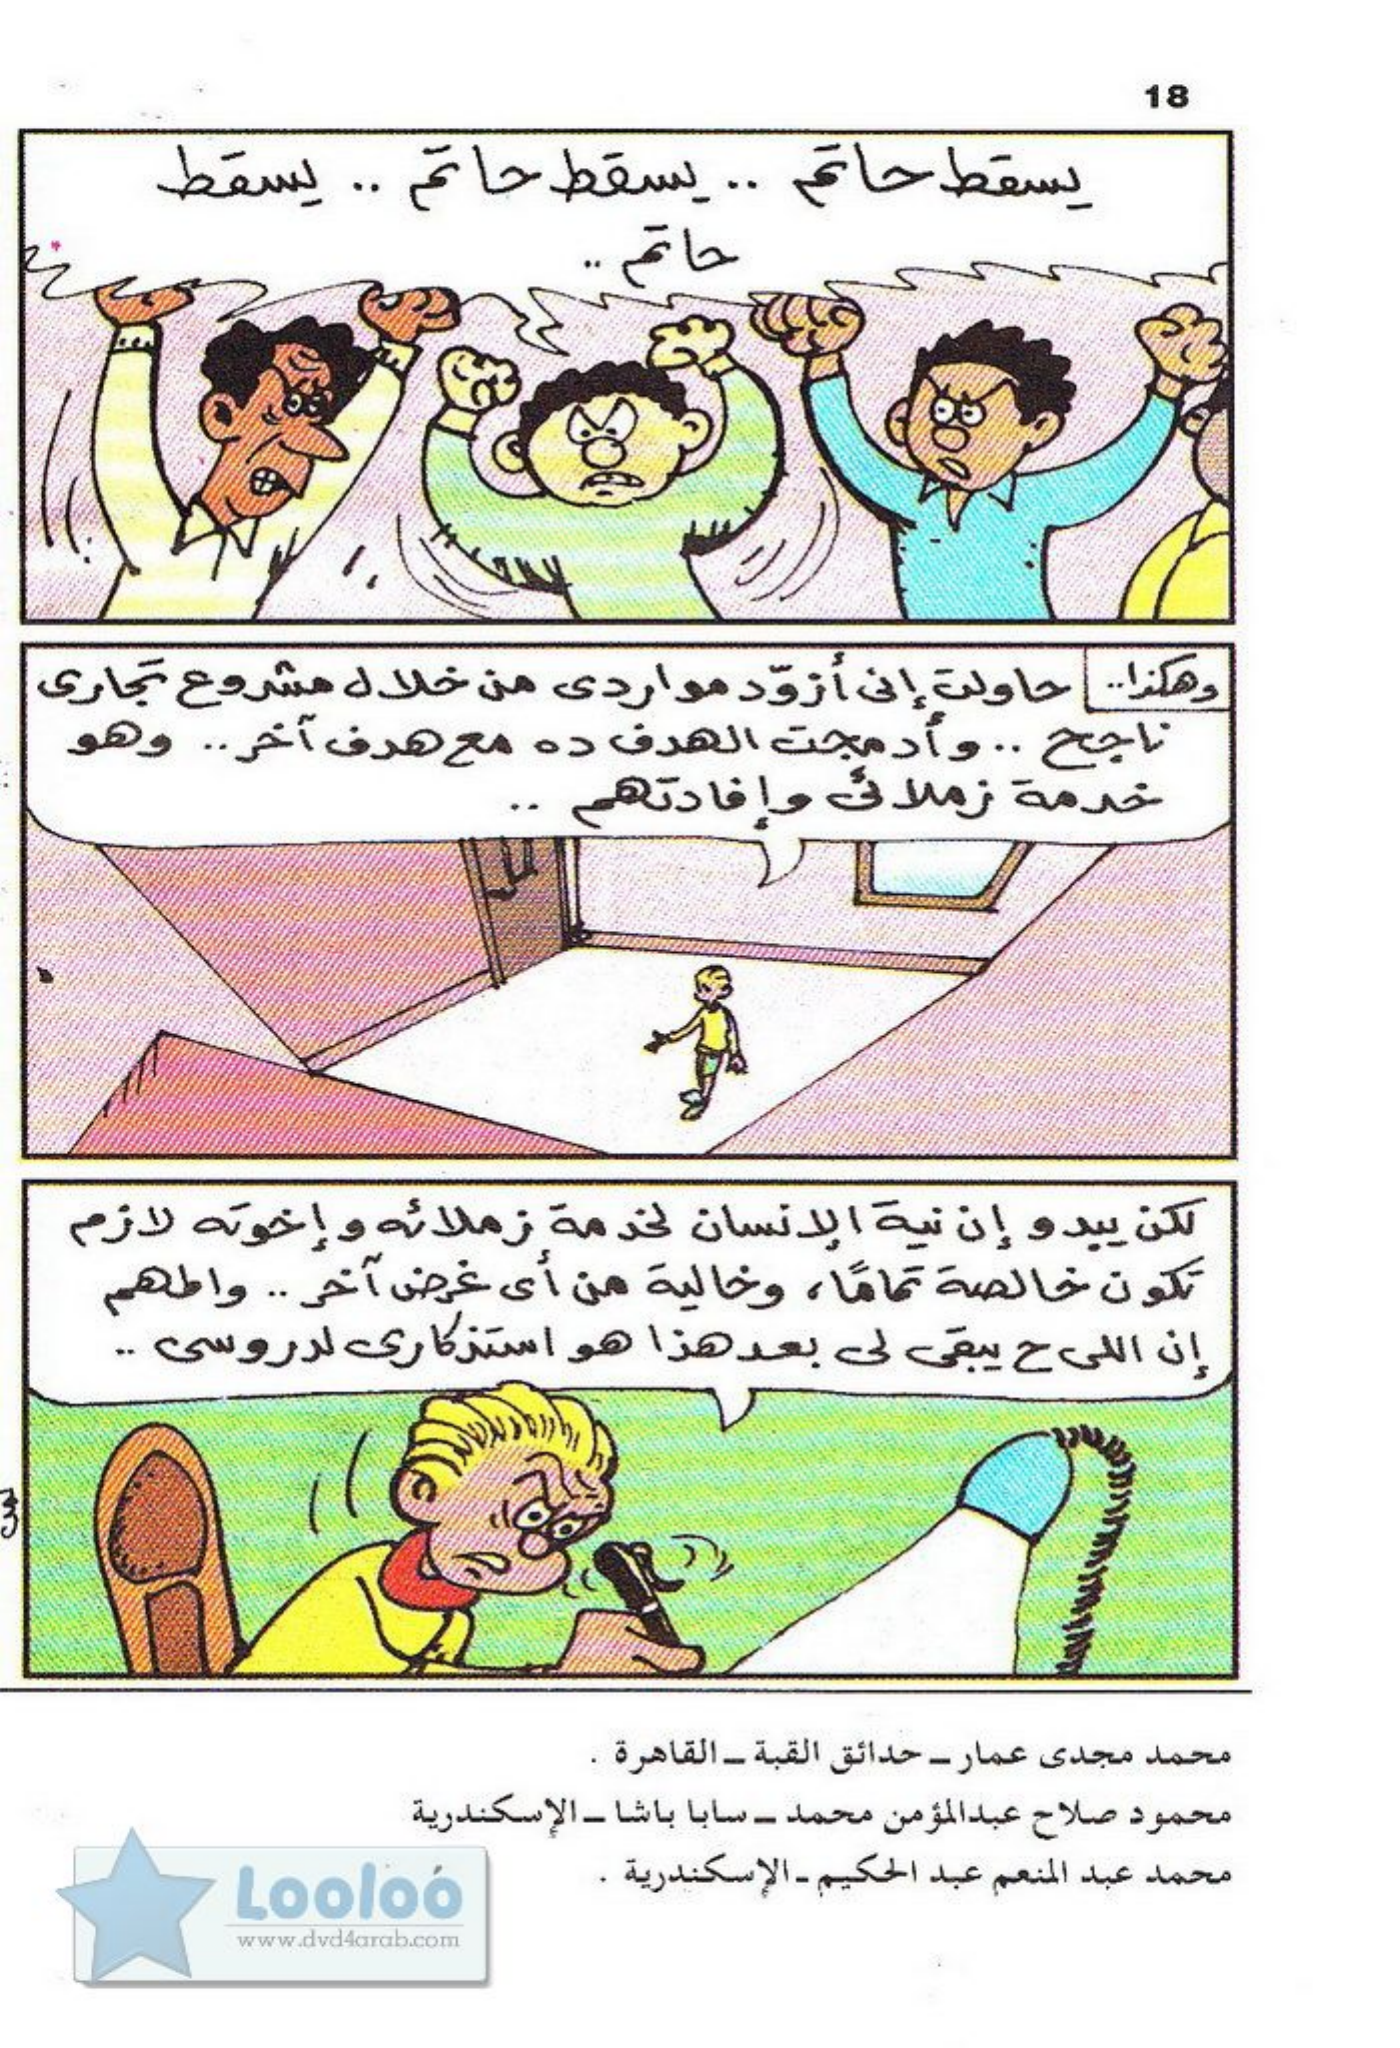 18
يسقط حاتم .. يسقط حاتم .. يسقط
حاتم ..
وهكذا..
حاولت إنى أزوّد مواردى من خلال مشروع تجارى
ناجح .. وأدمجت الهدف ده مع هدف آخر .. وهو
خدمة زملائى وإفادتهم ..
لكن يبدو إن نية الإنسان لخدمة زملائه وإخوته لازم
تكون خالصة تمامًا، وخالية من أى غرض آخر .. والمهم
إن اللى ح يبقى لى بعد هذا هو استذكارى لدروسى ..
محمد مجدى عمار ـ حدائق القبة ـ القاهرة .
محمود صلاح عبدالمؤمن محمد ـ سابا باشا ـ الإسكندرية
محمد عبد المنعم عبد الحكيم ـ الإسكندرية .
Looloó
www.dvd4arab.com